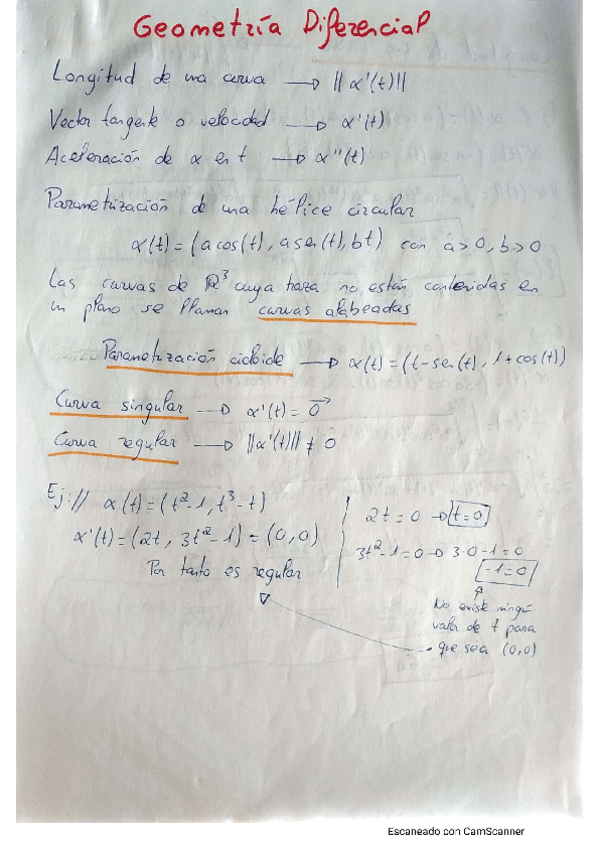 Geometría Diferencial
Longitud de una curva → ||α'(t)||
Vector tangente o velocidad → α'(t)
Aceleración de α en t → α''(t)
Parametrización de una hélice circular
α(t) = (a cos(t), a sen(t), bt) con a>0, b>0
Las curvas de ℝ³ cuya traza no están contenidas en
un plano se llaman curvas alabeadas
Parametrización cicloide → α(t) = (t-sen(t), 1+cos(t))
Curva singular → α'(t) = 0⃗
Curva regular → ||α'(t)|| ≠ 0
Ej:// α(t) = (t²-1, t³-t)
α'(t) = (2t, 3t²-1) = (0,0)
Por tanto es regular
2t = 0 → t=0
3t²-1=0 → 3·0-1=0
-1=0
No existe ningú
valor de t para
que sea (0,0)
Escaneado con CamScanner